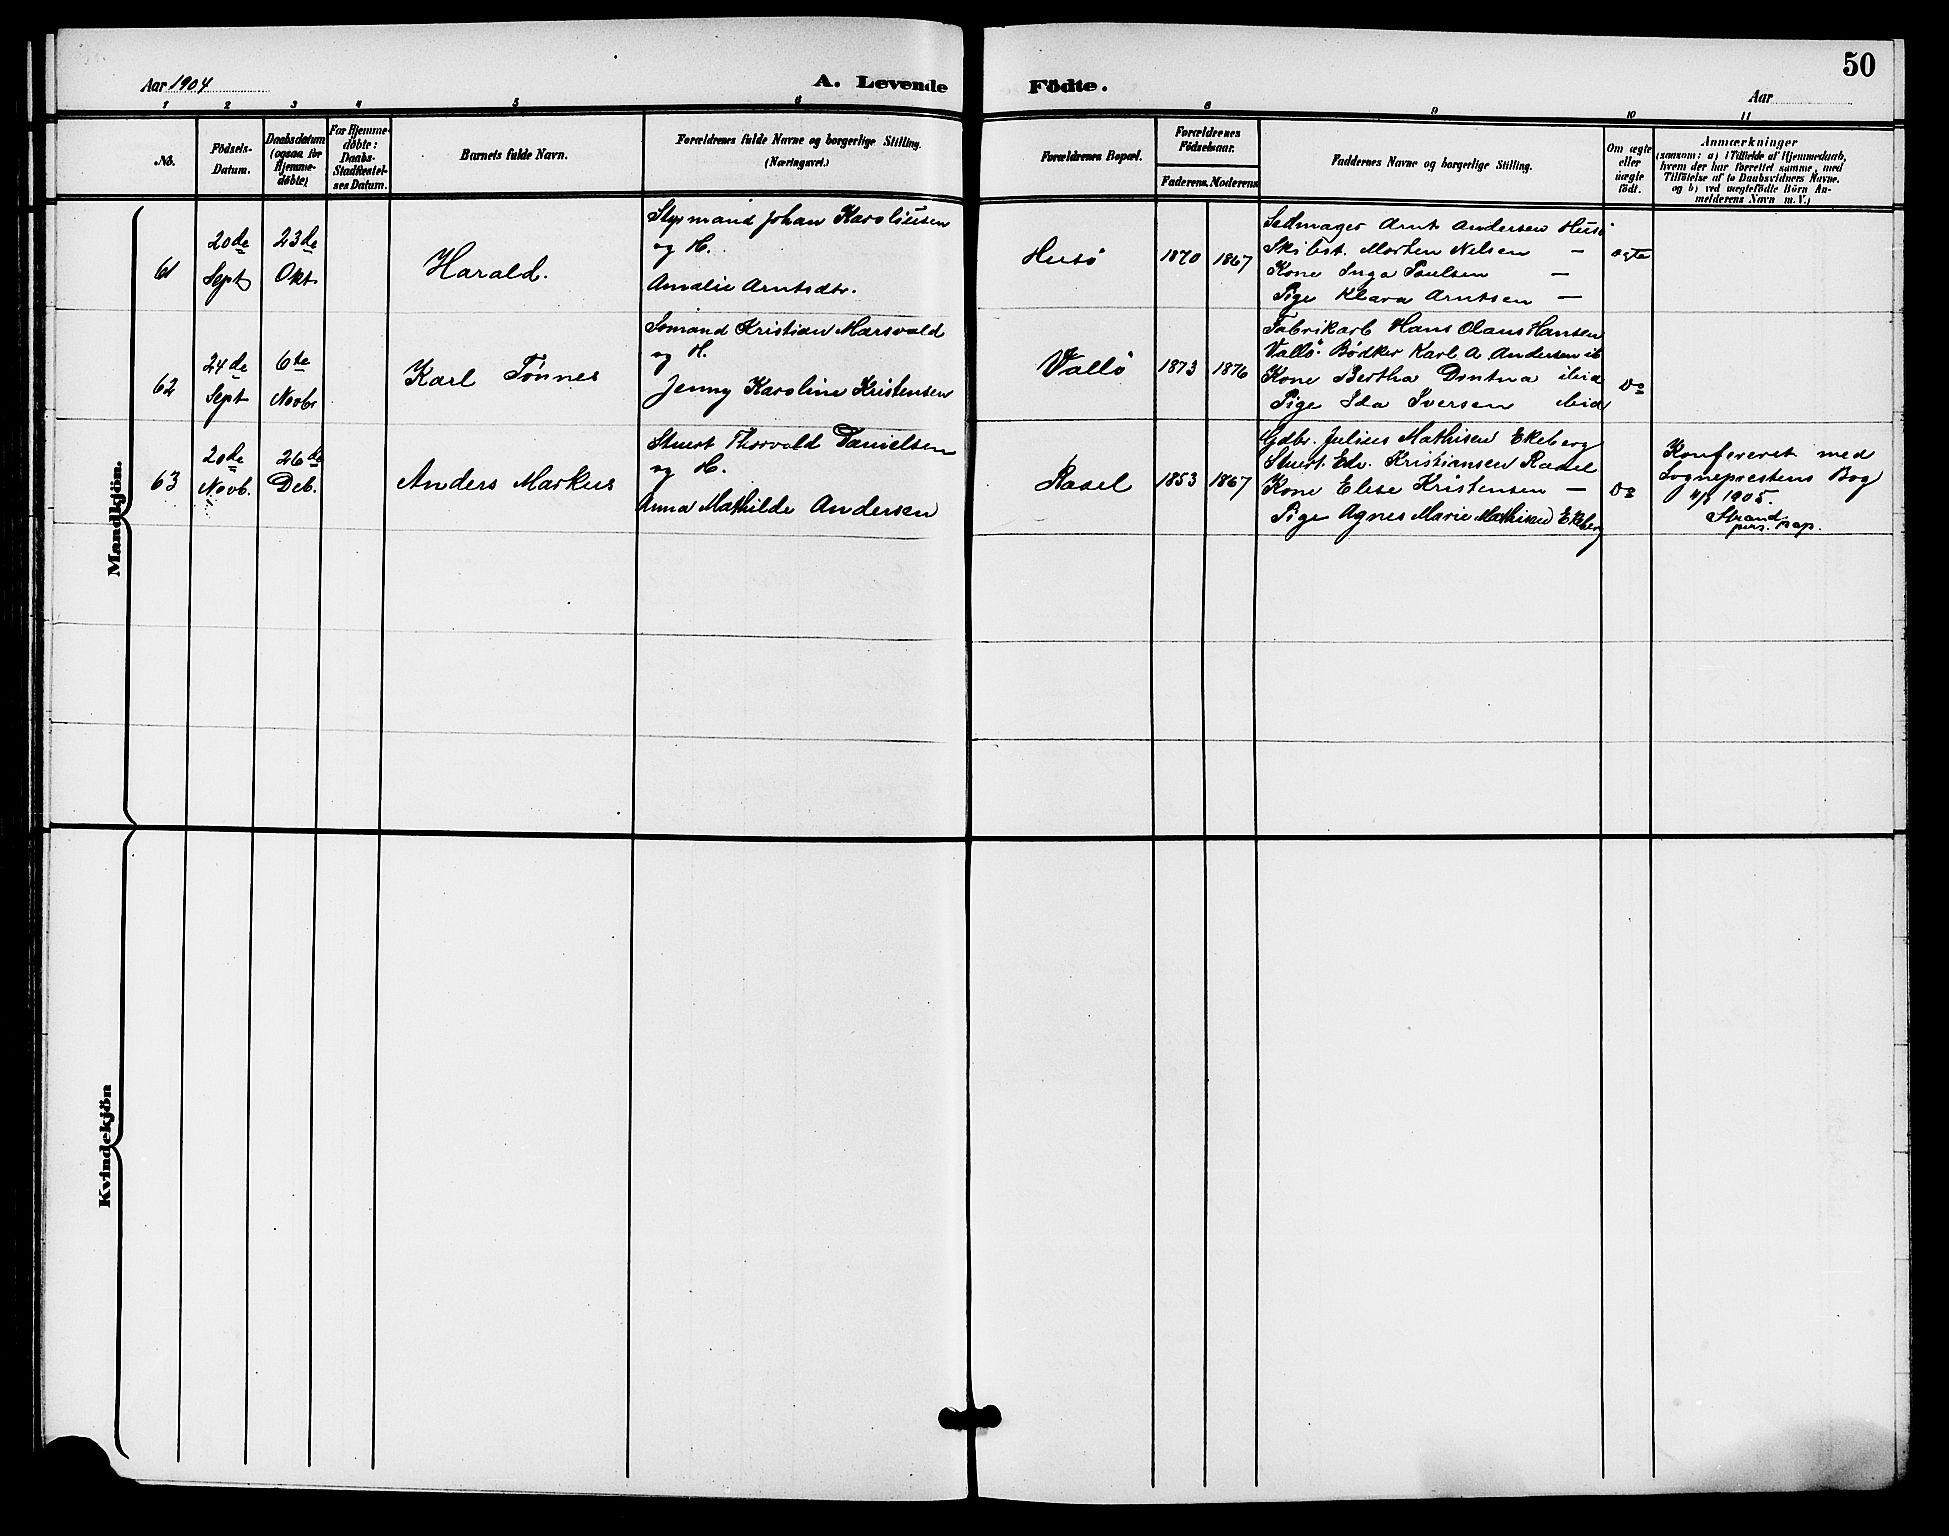 50
Aar 1904
A. Levende Födte.
Aar
1 2 3 4 5 6 8 9 10 11
No.
Födsels-Datum.
Daabsdatum (ogsaa for Hjemme-døbte)
For Hjemme-døbte: Daabs-Stadfæstel-ses Datum.
Barnets fulde Navn.
Forældrenes fulde Navne og borgerlige Stilling. (Næringsvei.)
Forældrenes Bopæl.
Forældrenes Födselsaar.
Faderens. Moderens
Faddernes Navne og borgerlige Stilling.
Om ægte eller uægte födt.
Anmærkninger
(saasom: a) i Tilfælde af Hjemmedaab,
hvem der har forrettet samme, med
Tilföielse af to Daabsvidners Navne.
og b) ved uægtefödte Börn An-
melderens Navn m. V.)
Mandkjön.
61
20de Sept
23de Okt
Harald.
Styrmand Johan Karoliusen
og H.
Amalie Arntsdtr.
Husö
1870
1867
Sedmager Arnt Andersen Husö
Skibst. Morten Nilsen —
Kone Inga Paulsen —
Pige Klara Arntsen —
ægte
62
24de Sept
6te Novbr
Karl Tönnes
Sömand Kristian Marsvald
og H.
Jenny Karoline Kristensen
Vallö
1873
1876
Fabrikarb Hans Olaus Hansen
Vallö. Bödker Karl A. Andersen ib
Kone Bertha ibid
Pige Ida Iversen ibid
Do
63
20de Novb.
26de Deb.
Anders Markus
Stuert Thorvald Danielsen
og H.
Anna Mathilde Andersen
Rasel
1853
1867
Gdbr. Julius Mathisen Ekeberg
Stuert. Edv. Kristiansen Rasel
Kone Elise Kristensen —
Pige Agnes Marie Mathisen Ekeberg
Do
Konfereret med
Sogneprestens Bog
1905.
Strand
pers. kap.
Kvindekjön